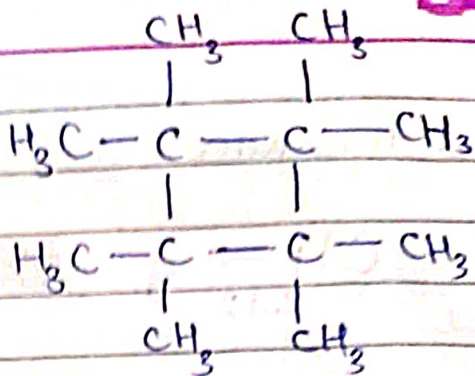 CH₃ CH₃
H₃C - C - C - CH₃
H₃C - C - C - CH₃
CH₃ CH₃